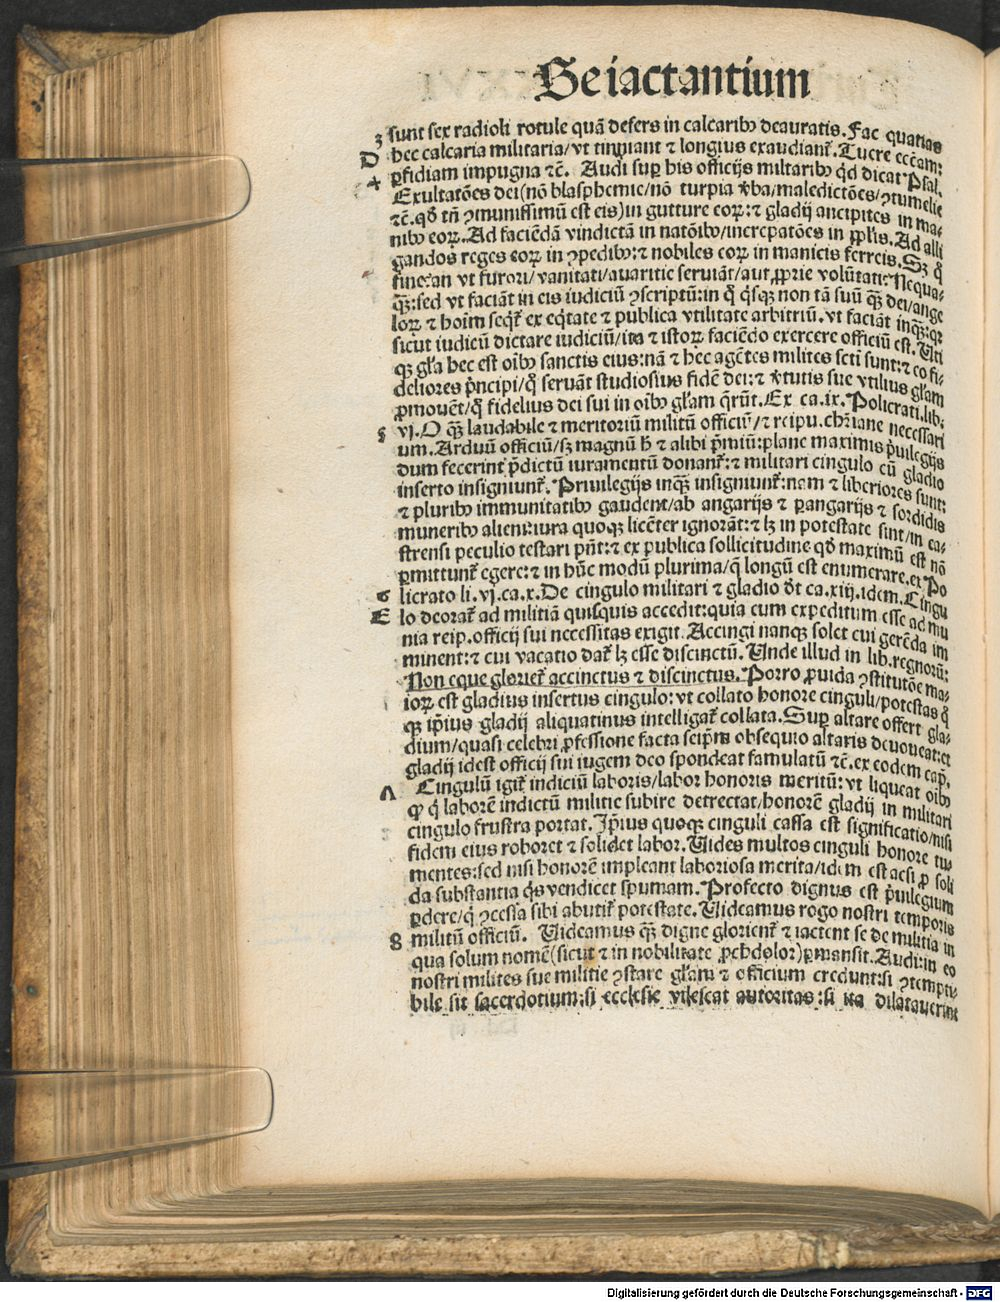 Se iactantium
3 sunt sex radioli rotule quā defers in calcaribꝰ deauratis. Fac quatias
D hec calcaria militaria/vt tinniant ⁊ longius exaudiant᷑. Tuere eccl̄am:
4 ꝑfidiam impugna ⁊c̄. Audi suꝑ his officijs militaribꝰ qđ dicat Psal.
Exultatōes dei(nō blasphemie/nō turpia v̾ba/maledictōes/ꝯtumelie
⁊c̄. qđ tn̄ ꝯmunissimū est eis)in gutture eoꝝ: ⁊ gladij ancipites in ma-
nibꝰ eoꝝ. Ad faciēdā vindictā in natōibꝰ/increpatōes in pp̄lis. Ad alli
gandos reges eoꝝ in ꝯpedibꝰ: ⁊ nobiles eoꝝ in manicis ferreis. Sꝫ q̄
fine: an vt furori/vanitati/auaritie seruiāt/aut ꝓprie volūtati: Nequa-
qꝫ: sed vt faciāt in eis iudiciū ꝯscriptū: in q̊ qˢqꝫ non tā suū qꝫ dei/ange
loꝝ ⁊ hoīm seqt᷑ ex eqˢtate ⁊ publica vtilitate arbitriū. vt faciāt inqꝫ: qꝛ
sicut iudicū dictare iudiciū/ita ⁊ istoꝝ faciēdo exercere officiū est. Uti
qꝫ gl̄a hec est oībꝰ sanctis eius: nā ⁊ hec agētes milites sc̄ti sunt: ⁊ eo fi-
deliores pˢncipi/q̊ seruāt studiosius fidē dei: ⁊ v̾tutis sue vtilius gl̄am
ꝓmouēt/q̊ fidelius dei sui in oībꝰ gl̄am q̄rūt. Ex ca. ix. Policrati. lib.
5 vj. O qꝫ laudabile ⁊ meritoriū militū officiū/⁊ reipu. chr̄iane necessari
um. Arduū officiū/sꝫ magnū h̄ ⁊ alibi p̄miū: plane maximis pˢuilegijs
dum fecerint p̄dictū iuramentū donant᷑: ⁊ militari cingulo cū gladio
inserto insigniunt᷑. Priuilegijs inqꝫ insigniunt᷑: nam ⁊ liberiores sunt:
⁊ pluribꝰ immunitatibꝰ gaudent/ab angarijs ⁊ ꝑangarijs ⁊ sordidis
muneribꝰ alieni: iura quoqꝫ licēter ignorāt: ⁊ lꝫ in potestate sint/in ca-
strensi peculio testari pn̄t: ⁊ ex publica sollicitudine qđ maximū est nō
ꝑmittunt᷑ egere: ⁊ in hūc modū plurima/q̄ longū est enumerare. ex Po
6 licrato li. vj. ca. x. De cingulo militari ⁊ gladio dt̄ ca. xiij. idem. Cingu
E lo decorat᷑ ad militiā quisquis accedit: quia eum expeditum esse ad mu
nia reip. officij sui necessitas exigit. Accingi nanqꝫ solet cui gerēda im
minent: ⁊ cui vacatio dat᷑ lꝫ esse discinctū. Unde illud in lib. regnorū:
Non eque gloriet᷑ accinctus ⁊ discinctus. Porro ꝓuida ꝯstitutōe ma-
ioꝝ est gladius insertus cingulo: vt collato honore cinguli/potestas q̄
qꝫ ip̄ius gladij aliquatinus intelligat᷑ collata. Suꝑ altare offert gla-
dium/quasi celebri ꝓfessione facta seip̄m obsequio altaris deuoueat: et
gladij idest officij sui iugem deo spondeat famulatū ⁊c̄. ex eodem cap̄.
7 Cingulū igit᷑ indiciū laboris/labor honoris meritū: vt liqueat oībꝰ
ꝙ qˢ laborē indictū militie subire detrectat/honorē gladij in militari
cingulo frustra portat. Ip̄ius quoqꝫ cinguli cassa est significatio/nisi
fidem eius roboret ⁊ solidet labor. Uides multos cinguli honore tu-
mentes: sed nisi honorē impleant laboriosa merita/idem est acsi ꝓ soli
da substantia qˢs vendicet spumam. Profecto dignus est pˢuilegium
ꝑdere/qˢ ꝯcessa sibi abutit᷑ potestate. Uideamus rogo nostri temporis
8 militū officiū. Uideamus qꝫ digne glorient᷑ ⁊ iactent se de militia in
qua solum nomē(sicut ⁊ in nobilitate ꝓchdolor)ꝑmansit. Audi: in eo
nostri milites sue militie ꝯstare gl̄am ⁊ officium credunt: si ꝯtempti-
bile sit sacerdotium: si ecclesie vilescat autoritas: si ita dilatauerint
Digitalisierung gefördert durch die Deutsche Forschungsgemeinschaft - DFG